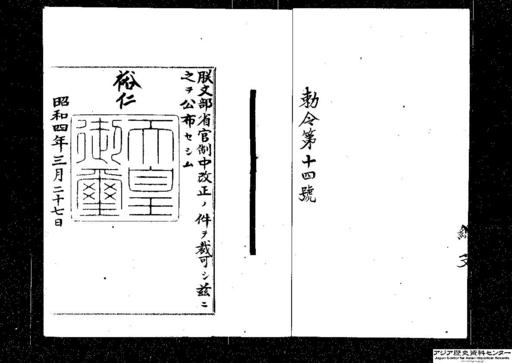 勅令第十四號
朕文部省官制中改正ノ件ヲ裁可シ茲ニ
之ヲ公布セシム
裕仁
天皇
御璽
昭和四年三月二十七日
アジア歴史資料センター
Japan Center for Asian Historical Records